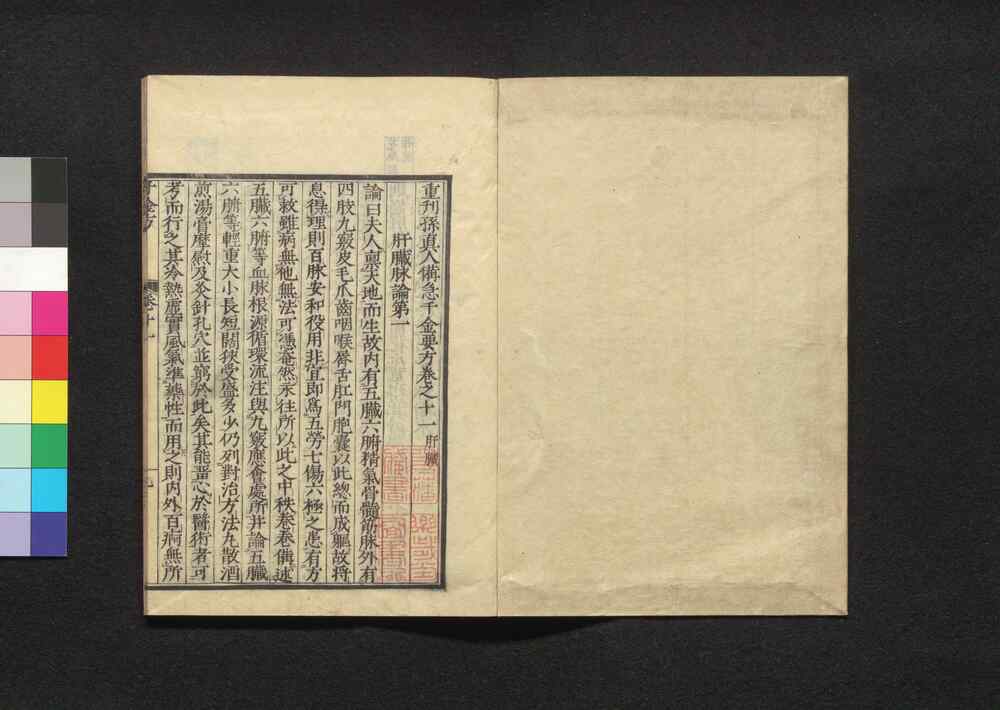 重刋孫真人備急千金要方卷之十一 肝臟
肝臟脉論第一
論曰夫人稟天地而生故内有五臟六腑精氣骨髓筋脉外有
四肢九竅皮毛爪齒咽喉唇舌肛門胞囊以此總而成軀故將
息得理則百脉安和役用非宜即爲五勞七傷六極之患有方
可救雖病無他無法可憑奄然永往所以此之中秩卷卷備述
五臟六腑等血脉根源循環流注與九竅應會處所并論五臟
六腑等輕重大小長短闊狹受盛多少仍列對治方法丸散酒
煎湯膏摩熨及灸針孔穴並窮於此矣其能畱心於醫術者可
考而行之其冷熱虛實風氣準藥性而用之則内外百病無所
千金方 卷十一